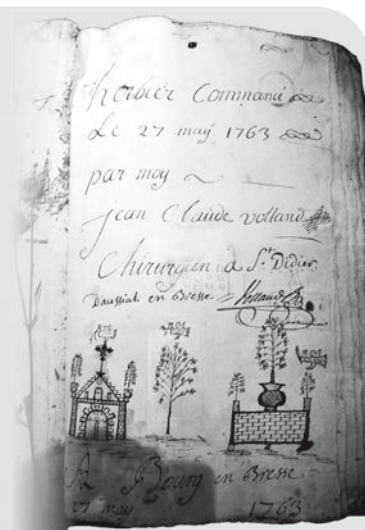 herbier Commancé
Le 27 maÿ 1763
par moy
jean Claude volland
Chirurgien a S.t Didier
Daussiat en Bresse Volland
A Bourg en Bresse
27 may 1763